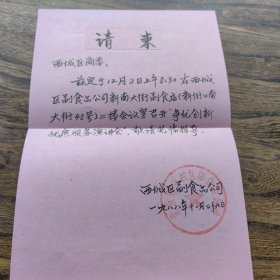 请柬
西城区商委:
兹定于12月2日上午8:30在西城
区副食品公司新南大街副食店(新街口南
大街43号)二楼会议室召开 争优创新
优质服务演讲会, 敬请光临指导.
西城区副食品公司
一九八八年十一月二十八日